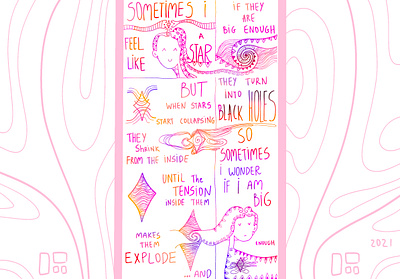 SOMETIMES I
FEEL
LIKE
A
STAR
BUT
WHEN STARS
START COLLAPSING
THEY
SHRINK
FROM THE INSIDE
UNTIL THE
TENSION
INSIDE THEM
MAKES
THEM
EXPLODE
...AND
IF THEY
ARE
BIG ENOUGH
THEY TURN
INTO
BLACK HOLES
SO
SOMETIMES
I WONDER
IF I AM
BIG
ENOUGH
2021